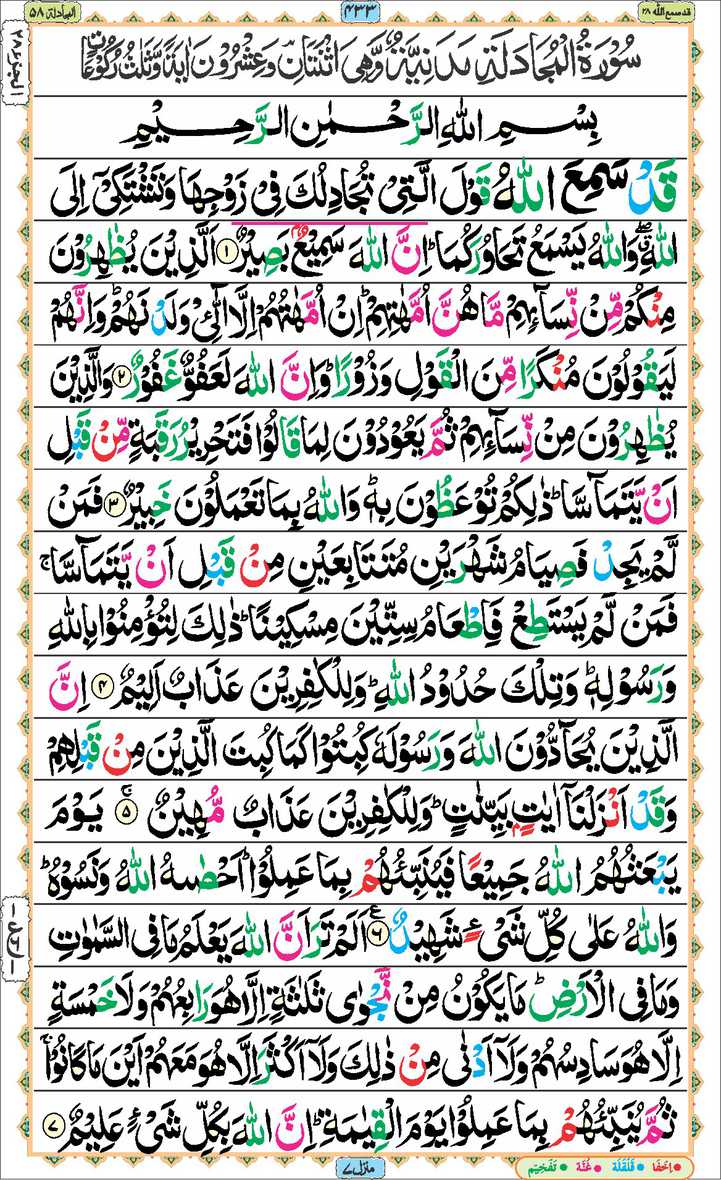 قد سمع الله ٢٨
٤٣٣
المجادلة ٥٨
الجزء ٢٨
سُوْرَةُ الْمُجَادَلَةِ مَدَنِيَّةٌ وَّهِيَ اثْنَتَانِ وَعِشْرُوْنَ اٰيَةً وَّثَلٰثُ رُكُوْعَاتٍ
بِسْمِ اللهِ الرَّحْمٰنِ الرَّحِيْمِ
قَدْ سَمِعَ اللهُ قَوْلَ الَّتِيْ تُجَادِلُكَ فِيْ زَوْجِهَا وَتَشْتَكِيْٓ اِلَى
اللهِ ۖ وَاللهُ يَسْمَعُ تَحَاوُرَكُمَا ؕ اِنَّ اللهَ سَمِيْعٌۢ بَصِيْرٌ ١ اَلَّذِيْنَ يُظٰهِرُوْنَ
مِنْكُمْ مِّنْ نِّسَآئِهِمْ مَّا هُنَّ اُمَّهٰتِهِمْ ؕ اِنْ اُمَّهٰتُهُمْ اِلَّا الّٰٓـِٔيْ وَلَدْنَهُمْ ؕ وَاِنَّهُمْ
لَيَقُوْلُوْنَ مُنْكَرًا مِّنَ الْقَوْلِ وَزُوْرًا ؕ وَاِنَّ اللهَ لَعَفُوٌّ غَفُوْرٌ ٢ وَالَّذِيْنَ
يُظٰهِرُوْنَ مِنْ نِّسَآئِهِمْ ثُمَّ يَعُوْدُوْنَ لِمَا قَالُوْا فَتَحْرِيْرُ رَقَبَةٍ مِّنْ قَبْلِ
اَنْ يَّتَمَآسَّا ؕ ذٰلِكُمْ تُوْعَظُوْنَ بِهٖ ؕ وَاللهُ بِمَا تَعْمَلُوْنَ خَبِيْرٌ ٣ فَمَنْ
لَّمْ يَجِدْ فَصِيَامُ شَهْرَيْنِ مُتَتَابِعَيْنِ مِنْ قَبْلِ اَنْ يَّتَمَآسَّا ۚ
فَمَنْ لَّمْ يَسْتَطِعْ فَاِطْعَامُ سِتِّيْنَ مِسْكِيْنًا ؕ ذٰلِكَ لِتُؤْمِنُوْا بِاللهِ
وَرَسُوْلِهٖ ؕ وَتِلْكَ حُدُوْدُ اللهِ ؕ وَلِلْكٰفِرِيْنَ عَذَابٌ اَلِيْمٌ ٤ اِنَّ
الَّذِيْنَ يُحَآدُّوْنَ اللهَ وَرَسُوْلَهٗ كُبِتُوْا كَمَا كُبِتَ الَّذِيْنَ مِنْ قَبْلِهِمْ
وَقَدْ اَنْزَلْنَآ اٰيٰتٍۭ بَيِّنٰتٍ ؕ وَلِلْكٰفِرِيْنَ عَذَابٌ مُّهِيْنٌ ٥ ۚ يَوْمَ
يَبْعَثُهُمُ اللهُ جَمِيْعًا فَيُنَبِّئُهُمْ بِمَا عَمِلُوْا ؕ اَحْصٰىهُ اللهُ وَنَسُوْهُ ؕ
وَاللهُ عَلٰى كُلِّ شَيْءٍ شَهِيْدٌ ٦ ع اَلَمْ تَرَ اَنَّ اللهَ يَعْلَمُ مَا فِي السَّمٰوٰتِ
وَمَا فِي الْاَرْضِ ؕ مَا يَكُوْنُ مِنْ نَّجْوٰى ثَلٰثَةٍ اِلَّا هُوَ رَابِعُهُمْ وَلَا خَمْسَةٍ
اِلَّا هُوَ سَادِسُهُمْ وَلَآ اَدْنٰى مِنْ ذٰلِكَ وَلَآ اَكْثَرَ اِلَّا هُوَ مَعَهُمْ اَيْنَ مَا كَانُوْا ۚ
ثُمَّ يُنَبِّئُهُمْ بِمَا عَمِلُوْا يَوْمَ الْقِيٰمَةِ ؕ اِنَّ اللهَ بِكُلِّ شَيْءٍ عَلِيْمٌ ٧
منزل ٧
اِخفَا قَلْقَلَة غُنَّة تَفْخِيْم